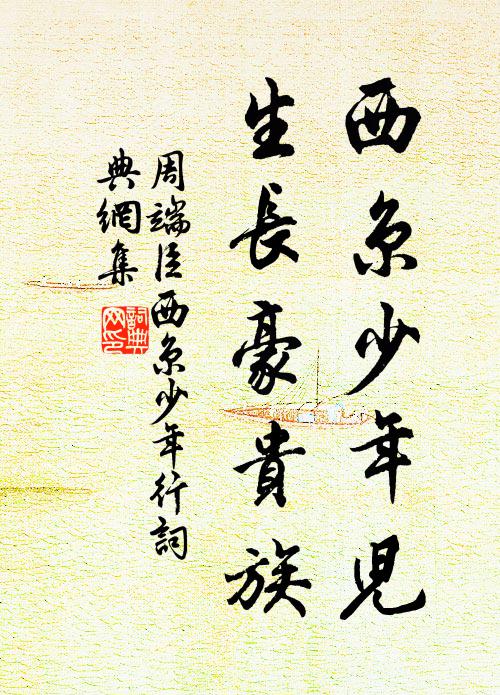 西京少年兒
生長豪貴族
周端臣西京少年行詞
典網集
詞典
网印